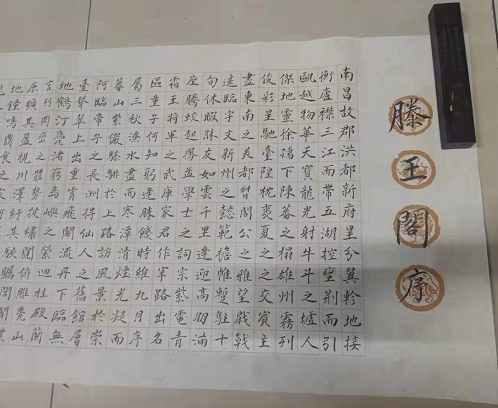 滕王閣序
南昌故郡洪都新府星分翼軫地接
衡廬襟三江而帶五湖控蠻荊而引
甌越物華天寶龍光射牛斗之墟人
傑地靈徐孺下陳蕃之榻雄州霧列
俊彩星馳臺隍枕夷夏之交賓主
盡東南之美都督閻公之雅望棨戟
遙臨宇文新州之懿範襜帷暫駐十
旬休暇勝友如雲千里逢迎高朋滿
座騰蛟起鳳孟學士之詞宗紫電青
霜王將軍之武庫家君作宰路出名
區童子何知躬逢勝餞時維九月序
屬三秋潦水盡而寒潭清煙光凝而
暮山紫儼驂騑於上路訪風景於崇
阿臨帝子之長洲得仙人之舊館層
臺聳翠上出重霄飛閣流丹下臨無
地鶴汀鳧渚窮島嶼之縈迴桂殿蘭
宮列岡巒之體勢披繡闥俯雕甍山
原曠其盈視川澤紆其駭矚閭閻撲